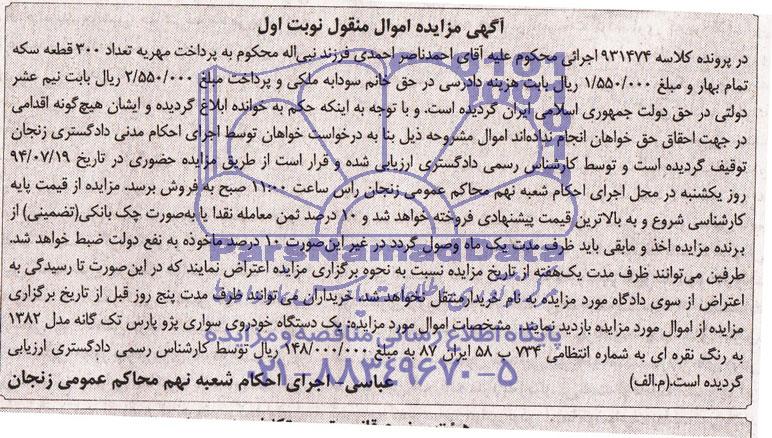 آگهی مزایده اموال منقول نوبت اول
در پرونده کلاسه ۹۳۱۴۷۴ اجرائی محکوم علیه آقای احمدناصر احمدی فرزند نبی‌اله محکوم به پرداخت مهریه تعداد ۳۰۰ قطعه سکه
تمام بهار و مبلغ ۱/۵۵۰/۰۰۰ ریال بابت هزینه دادرسی در حق خانم سودابه ملکی و پرداخت مبلغ ۲/۵۵۰/۰۰۰ ریال بابت نیم عشر
دولتی در حق دولت جمهوری اسلامی ایران گردیده است. و با توجه به اینکه حکم به خوانده ابلاغ گردیده و ایشان هیچ‌گونه اقدامی
در جهت احقاق حق خواهان انجام نداده‌اند اموال مشروحه ذیل بنا به درخواست خواهان توسط اجرای احکام مدنی دادگستری زنجان
توقیف گردیده است و توسط کارشناس رسمی دادگستری ارزیابی شده و قرار است از طریق مزایده حضوری در تاریخ ۹۴/۰۷/۱۹
روز یکشنبه در محل اجرای احکام شعبه نهم محاکم عمومی زنجان راس ساعت ۱۱:۰۰ صبح به فروش برسد. مزایده از قیمت پایه
کارشناسی شروع و به بالاترین قیمت پیشنهادی فروخته خواهد شد و ۱۰ درصد ثمن معامله نقدا یا به‌صورت چک بانکی(تضمینی) از
برنده مزایده اخذ و مابقی باید ظرف مدت یک ماه وصول گردد در غیر این‌صورت ۱۰ درصد ماخوذه به نفع دولت ضبط خواهد شد.
طرفین می‌توانند ظرف مدت یک‌هفته از تاریخ مزایده نسبت به نحوه برگزاری مزایده اعتراض نمایند که در این‌صورت تا رسیدگی به
اعتراض از سوی دادگاه مورد مزایده به نام خریدار منتقل نخواهد شد. خریداران می توانند ظرف مدت پنج روز قبل از تاریخ برگزاری
مزایده از اموال مورد مزایده بازدید نمایند. مشخصات اموال مورد مزایده: یک دستگاه خودروی سواری پژو پارس تک گانه مدل ۱۳۸۲
به رنگ نقره ای به شماره انتظامی ۷۳۴ ب ۵۸ ایران ۸۷ به مبلغ ۱۴۸/۰۰۰/۰۰۰ ریال توسط کارشناس رسمی دادگستری ارزیابی
گردیده است.(م.الف) عباسی - اجرای احکام شعبه نهم محاکم عمومی زنجان
ParsNamadData
پایگاه اطلاع رسانی مناقصه و مزایده
۰۲۱-۸۸۳۴۹۶۷۰-۵